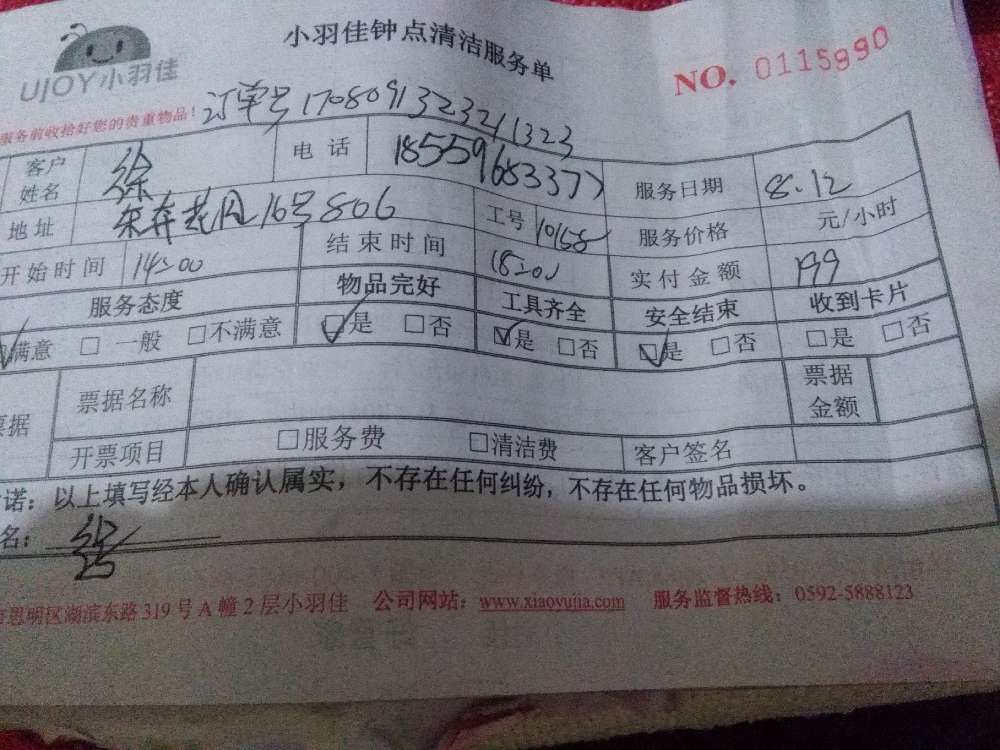 UJOY小羽佳
小羽佳钟点清洁服务单
NO. 0115990
服务前收拾好您的贵重物品!
订单号170809132321323
客户姓名 徐 电话 18559683377 服务日期 8.12
地址 花园16号806 工号 10158 服务价格 元/小时
开始时间 14:00 结束时间 18:00 实付金额 199
服务态度 物品完好 工具齐全 安全结束 收到卡片
满意 □ 一般 □不满意 ☑是 □否 ☑是 □否 ☑是 □否 □是 □否
票据 票据名称 票据金额
开票项目 □服务费 □清洁费 客户签名
诺：以上填写经本人确认属实，不存在任何纠纷，不存在任何物品损坏。
名：
市思明区湖滨东路319号A幢2层小羽佳 公司网站：www.xiaoyujia.com 服务监督热线：0592-5888123